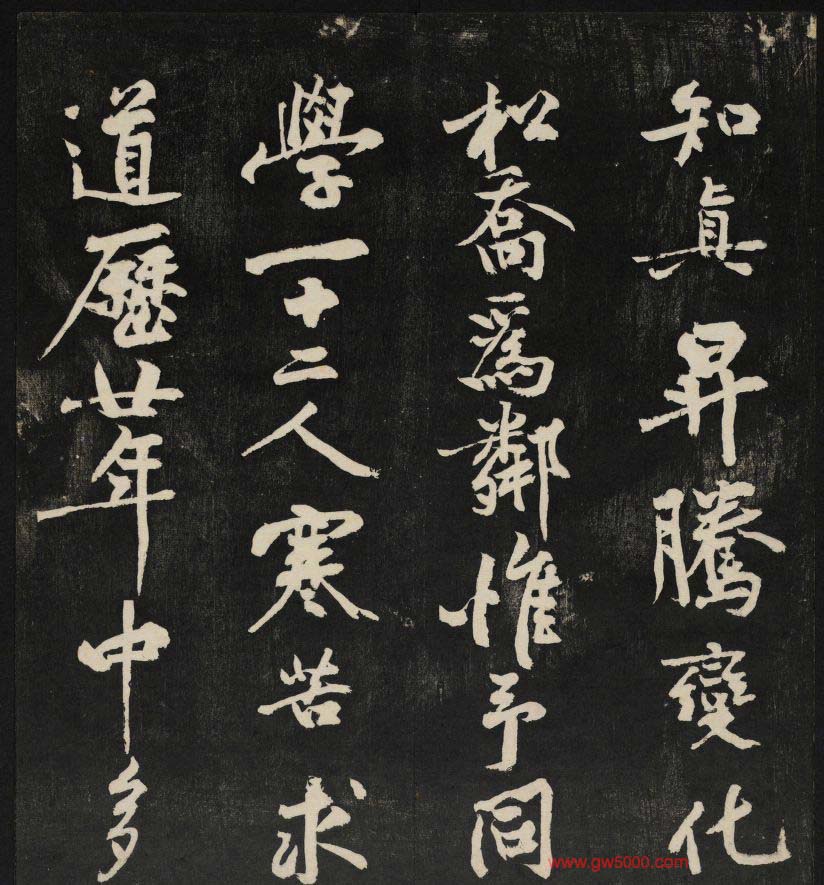 知真昇騰變化
松喬爲鄰惟予同
學一十二人寒苦求
道歷廿年中多
www.gw5000.com